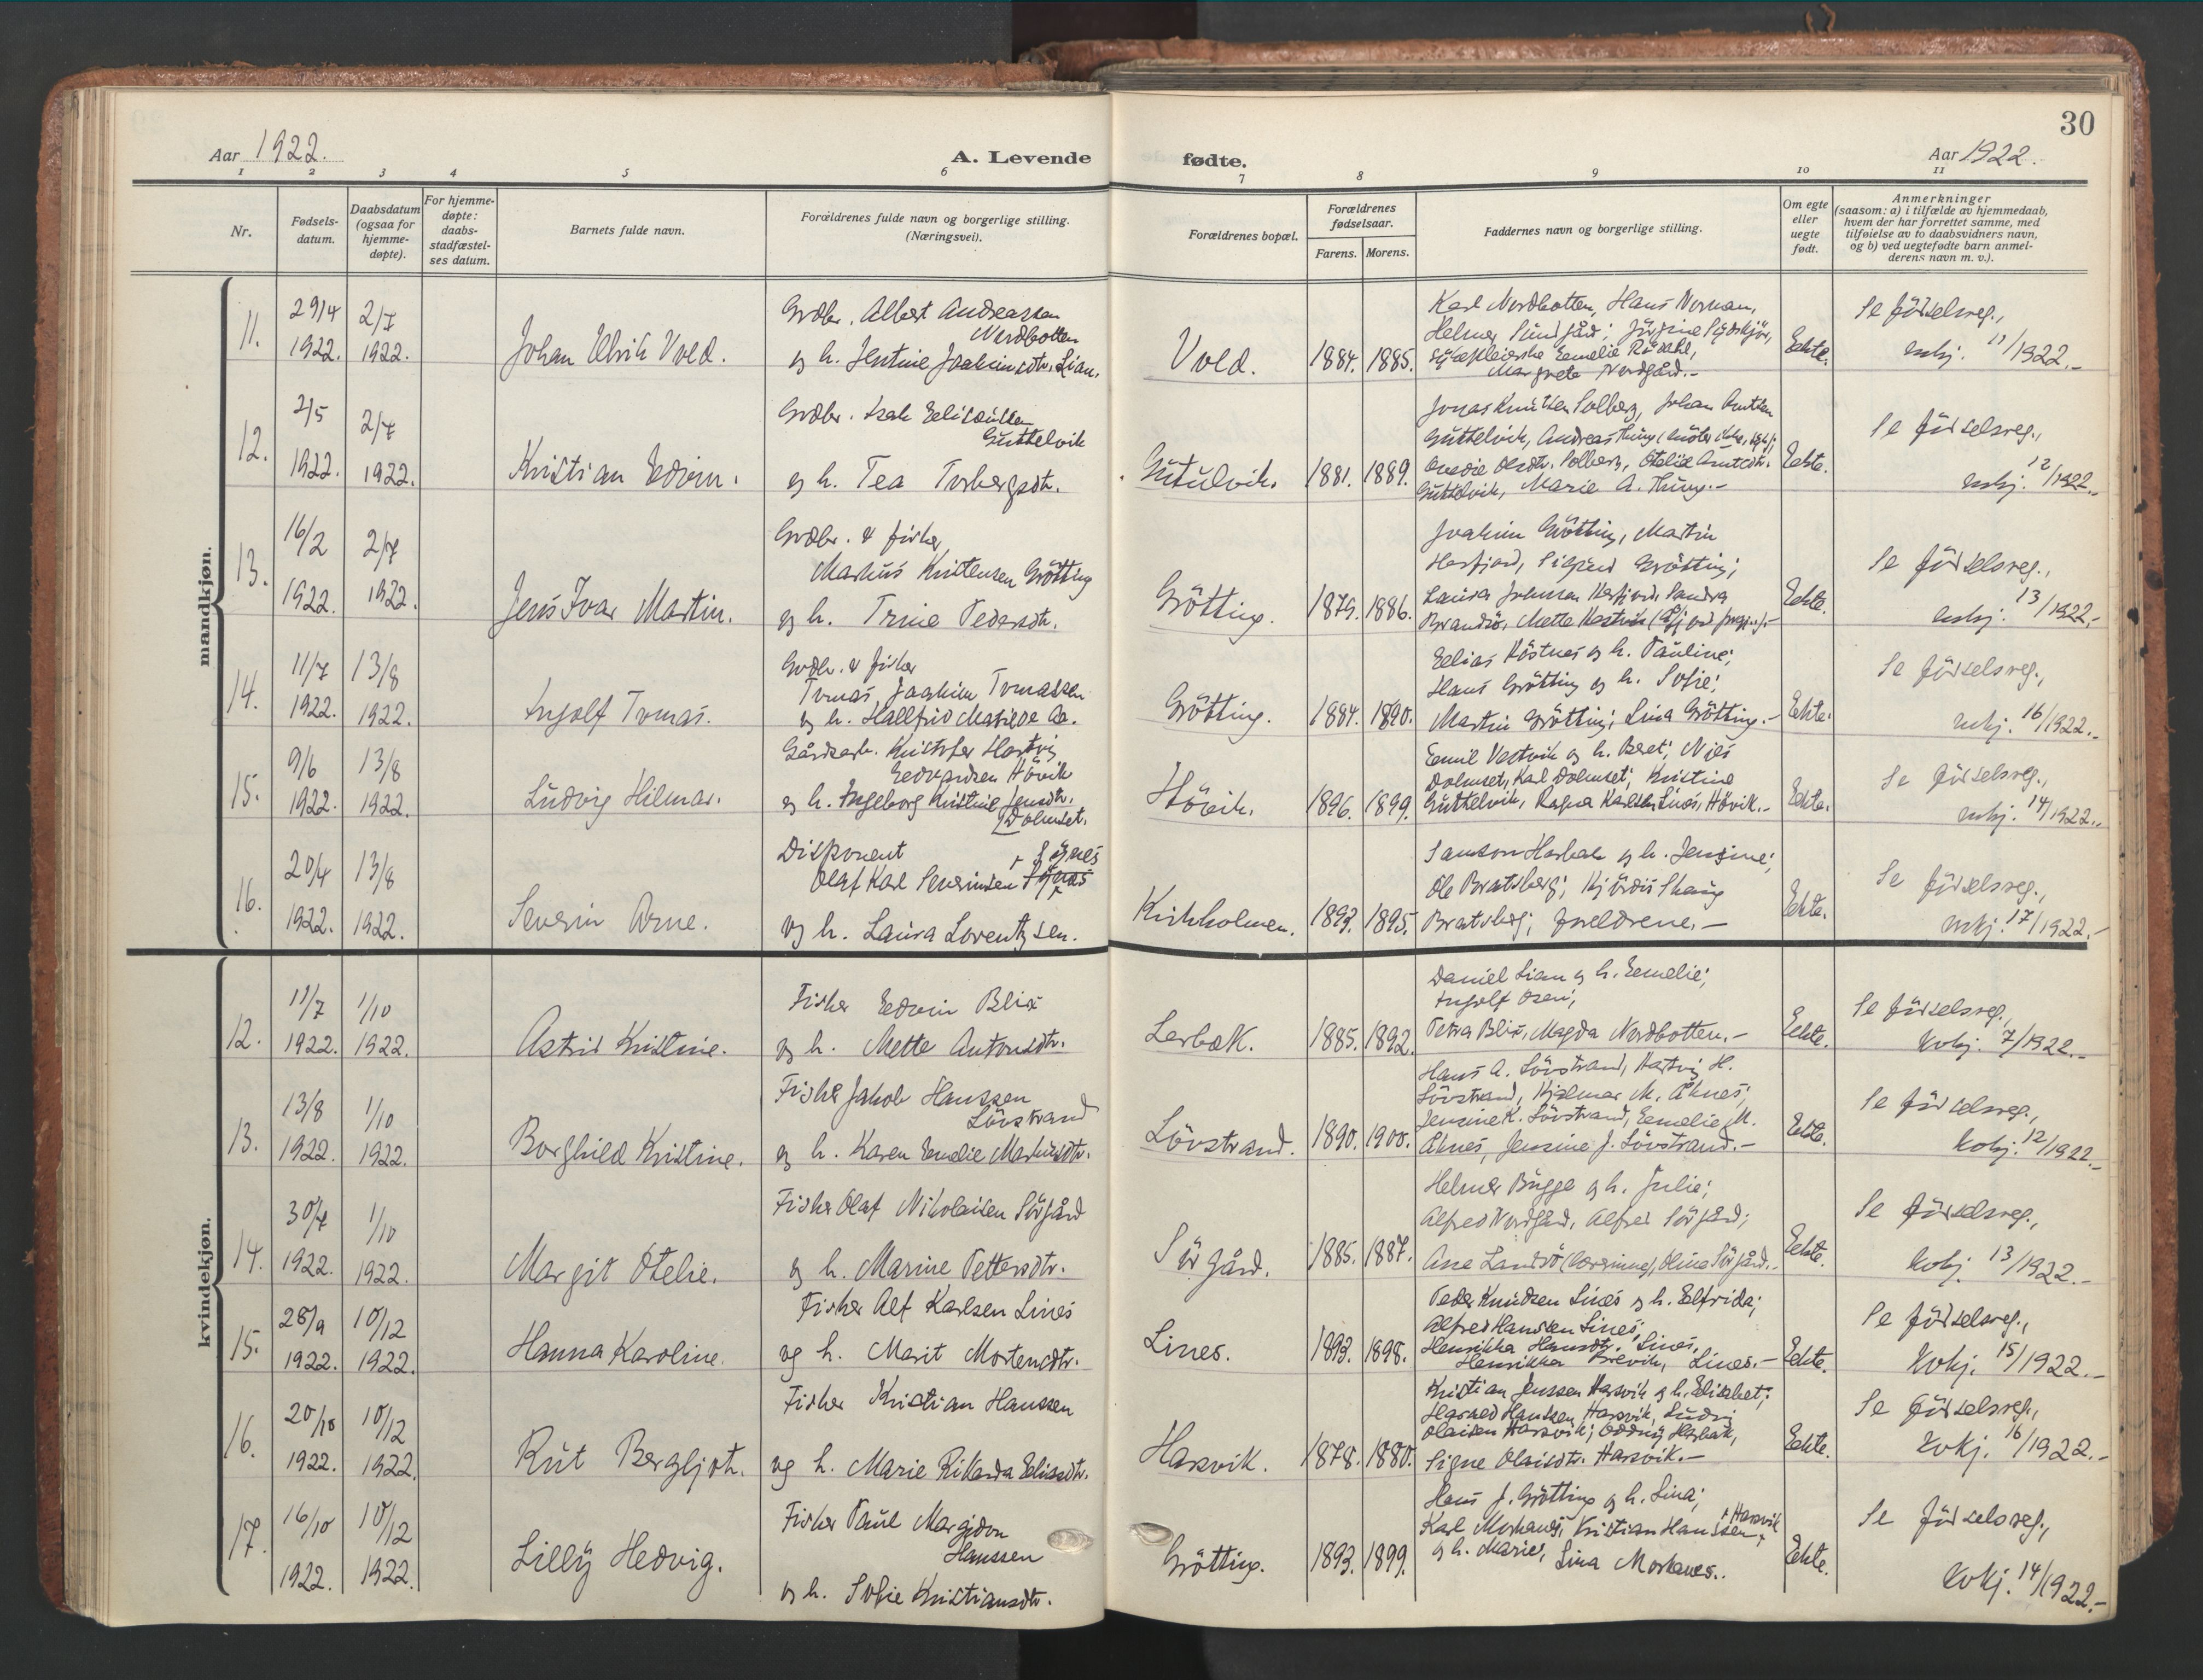 30
Aar 1922.
A. Levende
fødte.
Aar 1922.
1 2 3 4 5 6 7 8 9 10 11
Nr.
Fødsels-
datum.
Daabsdatum
(ogsaa for
hjemme-
døpte).
For hjemme-
døpte:
daabs-
stadfæstel-
ses datum.
Barnets fulde navn.
Forældrenes fulde navn og borgerlige stilling.
(Næringsvei).
Forældrenes bopæl.
Forældrenes
fødselsaar.
Farens. Morens.
Faddernes navn og borgerlige stilling.
Om egte
eller
uegte
født.
Anmerkninger
(saasom: a) i tilfælde av hjemmedaab,
hvem der har forrettet samme, med
tilføielse av to daabsvidners navn,
og b) ved uegtefødte barn anmel-
derens navn m. v.).
mandkjøn.
11.
29/4
1922.
2/7
1922.
Johan Ulrik Vold.
Grdbr. Albert Andreassen
Nordbotten
og h. Jentine Joakimsdtr. Lian.
Vold.
1884. 1885.
Karl Nordbotten, Hans Norman,
Helmer Sundgård;
Emelie
Margrete Nordgård.-
Eekte.
Se födselsreg.,
mkj. 11/1922.-
12.
2/5
1922.
2/7
1922.
Kristian Edvin.
Grdbr. Isak
Guttelvik
og h. Tea Torbergsdtr.
Gutulvik.
1881. 1889.
Jonas Knutsen Solberg, Johan
Guttelvik, Andreas
Olsdtr. Solberg, Otelie
Guttelvik, Marie A.
Eekte.
Se födselsreg.,
mkj. 12/1922.-
13.
16/2
1922.
2/7
1922.
Jens Ivar Martin.
Grdbr. & fisker
Markus Kristensen Grötting
og h. Trine Pedersdtr.
Grötting.
1875. 1886.
Joakim Grötting, Martin
Herfjord, Sigurd Grötting;
Laura Johnsen Herfjord, Sandra
Brandsö, Mette
Eekte.
Se födselsreg.,
mkj. 13/1922.-
14.
11/7
1922.
13/8
1922.
Ingolf Tomas.
Grdbr. & fisker
Tomas Joakim Tomassen
og h. Hallfrid Matilde Aa.
Grötting.
1884. 1890.
Elias Röstnes og h. Pauline;
Hans Grötting og h. Sofie;
Martin Grötting; Lina Grötting.-
Eekte.
Se födselsreg.,
mkj. 16/1922.-
15.
9/6
1922.
13/8
1922.
Ludvig Hilmar.
Gårdsarb. Kristofer Hartvig
Edvardsen Hövik
og h. Ingeborg Kristine Jensdtr.
Dolmset.
Hövik.
1896. 1899.
Emil Vestvik og h. Beret; Nils
Dolmset, Karl Dolmset; Kristine
Guttelvik, Ragna Karlsen Lines, Hövik.-
Eekte.
Se födselsreg.,
mkj. 14/1922.-
16.
20/4
1922.
13/8
1922.
Severin Arne.
Disponent
Olaf Karl Severinsen
og h. Laura Lorentzen.
Kirkholmen.
1893. 1895.
Samson Harbak og h. Jensine;
Ole Bratsberg; Hjördis Skaug
Bratsberg; foreldrene.-
Eekte.
Se födselsreg.,
mkj. 17/1922.-
kvindekjøn.
12.
11/7
1922.
1/10
1922.
Astrid Kristine.
Fisker Edvin Blix
og h. Mette Antonsdtr.
Lerbæk.
1885. 1892.
Daniel Lian og h. Emelie;
Ingolf Osen;
Petra Blix, Magda Nordbotten.-
Eekte.
Se födselsreg.,
kvkj. 7/1922.-
13.
13/8
1922.
1/10
1922.
Borghild Kristine.
Fisker Jakob Hanssen
Lövstrand
og h. Karen Emelie Markusdtr.
Lövstrand.
1890. 1900.
Hans A. Lövstrand, Hartvig H.
Lövstrand, Hjalmar M. Åknes;
Jensine K. Lövstrand, Emelie M.
Åknes, Jensine J. Lövstrand.-
Eekte.
Se födselsreg.,
kvkj. 12/1922.-
14.
30/7
1922.
1/10
1922.
Margit Otelie.
Fisker Olaf Nikolaisen Sörgård
og h. Marine Pettersdtr.
Sörgård.
1885. 1887.
Helmer Bugge og h. Julie;
Alfred Nordgård, Alfred Sörgård;
Ane Landsö (lærerinne), Olina Sörgård.-
Eekte.
Se födselsreg.,
kvkj. 13/1922.-
15.
28/9
1922.
10/12
1922.
Hanna Karoline.
Fisker Alf Karlsen Lines
og h. Marit Mortensdtr.
Lines.
1893. 1898.
Peder Knudsen Lines og h. Elfrida;
Alfred Hansen Lines,
Henrikka Hansdtr. Lines,
Henrikka Brevik, Lines.-
Eekte.
Se födselsreg.,
kvkj. 15/1922.-
16.
20/10
1922.
10/12
1922.
Rut Bergljot.
Fisker Kristian Hanssen
og h. Marie Rikarda Eliasdtr.
Harsvik.
1878. 1880.
Kristian Jenssen Harsvik og h. Elisabet;
Harald Hanssen Harsvik, Ludvig
Olaisen Harsvik; Oddny Harbak,
Signe Olaisdtr. Harsvik.-
Eekte.
Se födselsreg.,
kvkj. 16/1922.-
17.
16/10
1922.
10/12
1922.
Lilly Hedvig.
Fisker Paul Margidon
Hanssen
og h. Sofie Kristiansdtr.
Grötting.
1893. 1899.
Hans J. Grötting og h. Lina;
Karl Morkanes, Kristian Hanssen Harsvik
og h. Marie, Lina Morkanes.
Eekte.
Se födselsreg.,
kvkj. 14/1922.-